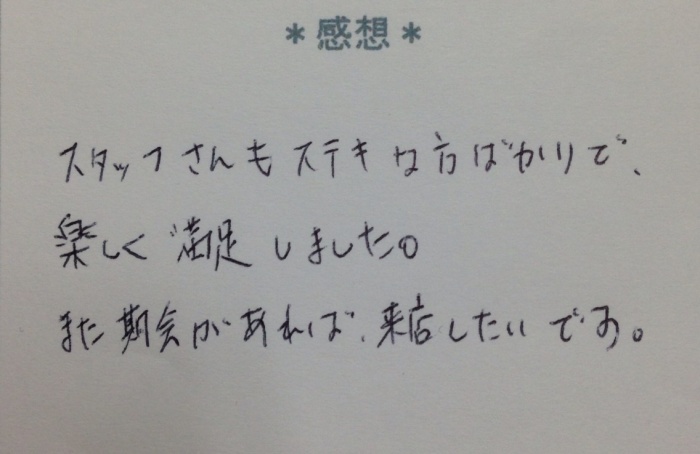 ＊感想＊
スタッフさんもステキな方ばかりで、
楽しく満足しました。
また期会があれば、来店したいです。